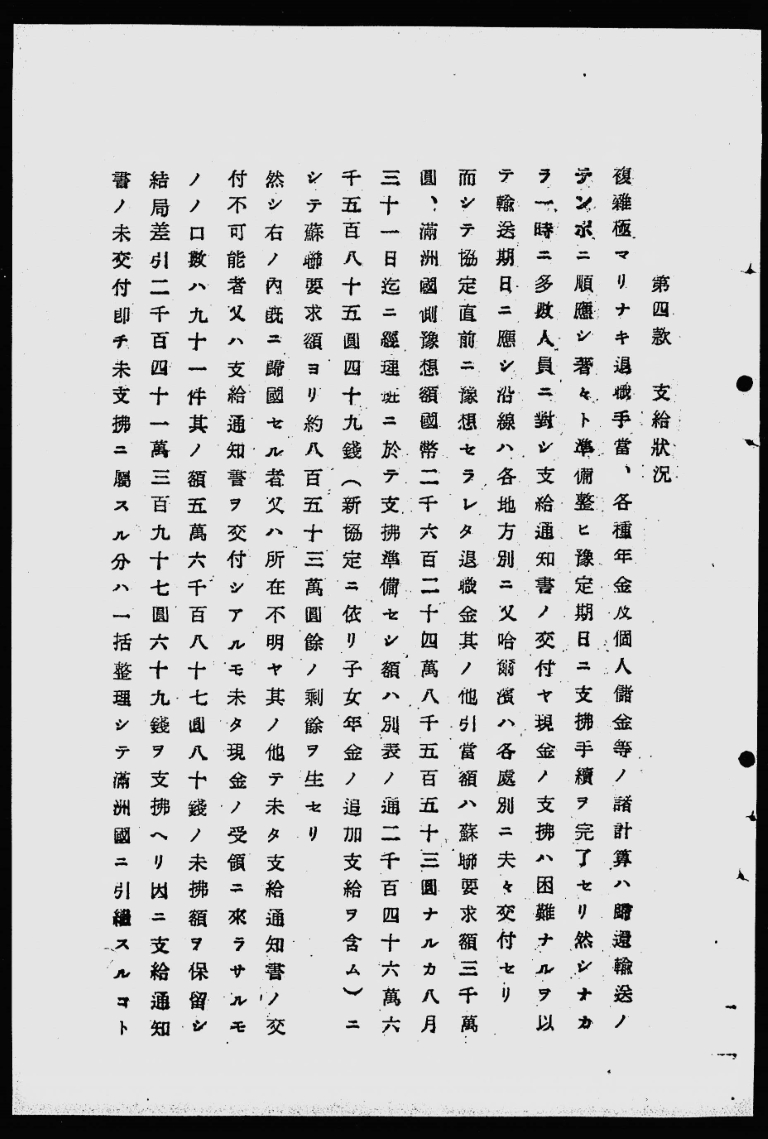 第四款　支給狀況
複雜極マリナキ退職手當、各種年金及個人儲金等ノ諸計算ハ歸還輸送ノ
テンポニ順應シ著々ト準備整ヒ豫定期日ニ支拂手續ヲ完了セリ然シナカ
ラ一時ニ多數人員ニ對シ支給通知書ノ交付ヤ現金ノ支拂ハ困難ナルヲ以
テ輸送期日ニ應シ沿線ハ各地方別ニ又哈爾濱ハ各處別ニ夫々交付セリ
而シテ協定直前ニ豫想セラレタ退職金其ノ他引當額ハ蘇聯要求額三千萬
圓、滿洲國側豫想額國幣二千六百二十四萬八千五百五十三圓ナルカ八月
三十一日迄ニ經理班ニ於テ支拂準備セシ額ハ別表ノ通二千百四十六萬六
千五百八十五圓四十九錢（新協定ニ依リ子女年金ノ追加支給ヲ含ム）ニ
シテ蘇聯要求額ヨリ約八百五十三萬圓餘ノ剩餘ヲ生セリ
然シ右ノ內既ニ歸國セル者又ハ所在不明ヤ其ノ他テ未タ支給通知書ノ交
付不可能者又ハ支給通知書ヲ交付シアルモ未タ現金ノ受領ニ來ラサルモ
ノノ口數ハ九十一件其ノ額五萬六千百八十七圓八十錢ノ未拂額ヲ保留シ
結局差引二千百四十一萬三百九十七圓六十九錢ヲ支拂ヘリ因ニ支給通知
書ノ未交付卽チ未支拂ニ屬スル分ハ一括整理シテ滿洲國ニ引繼スルコト